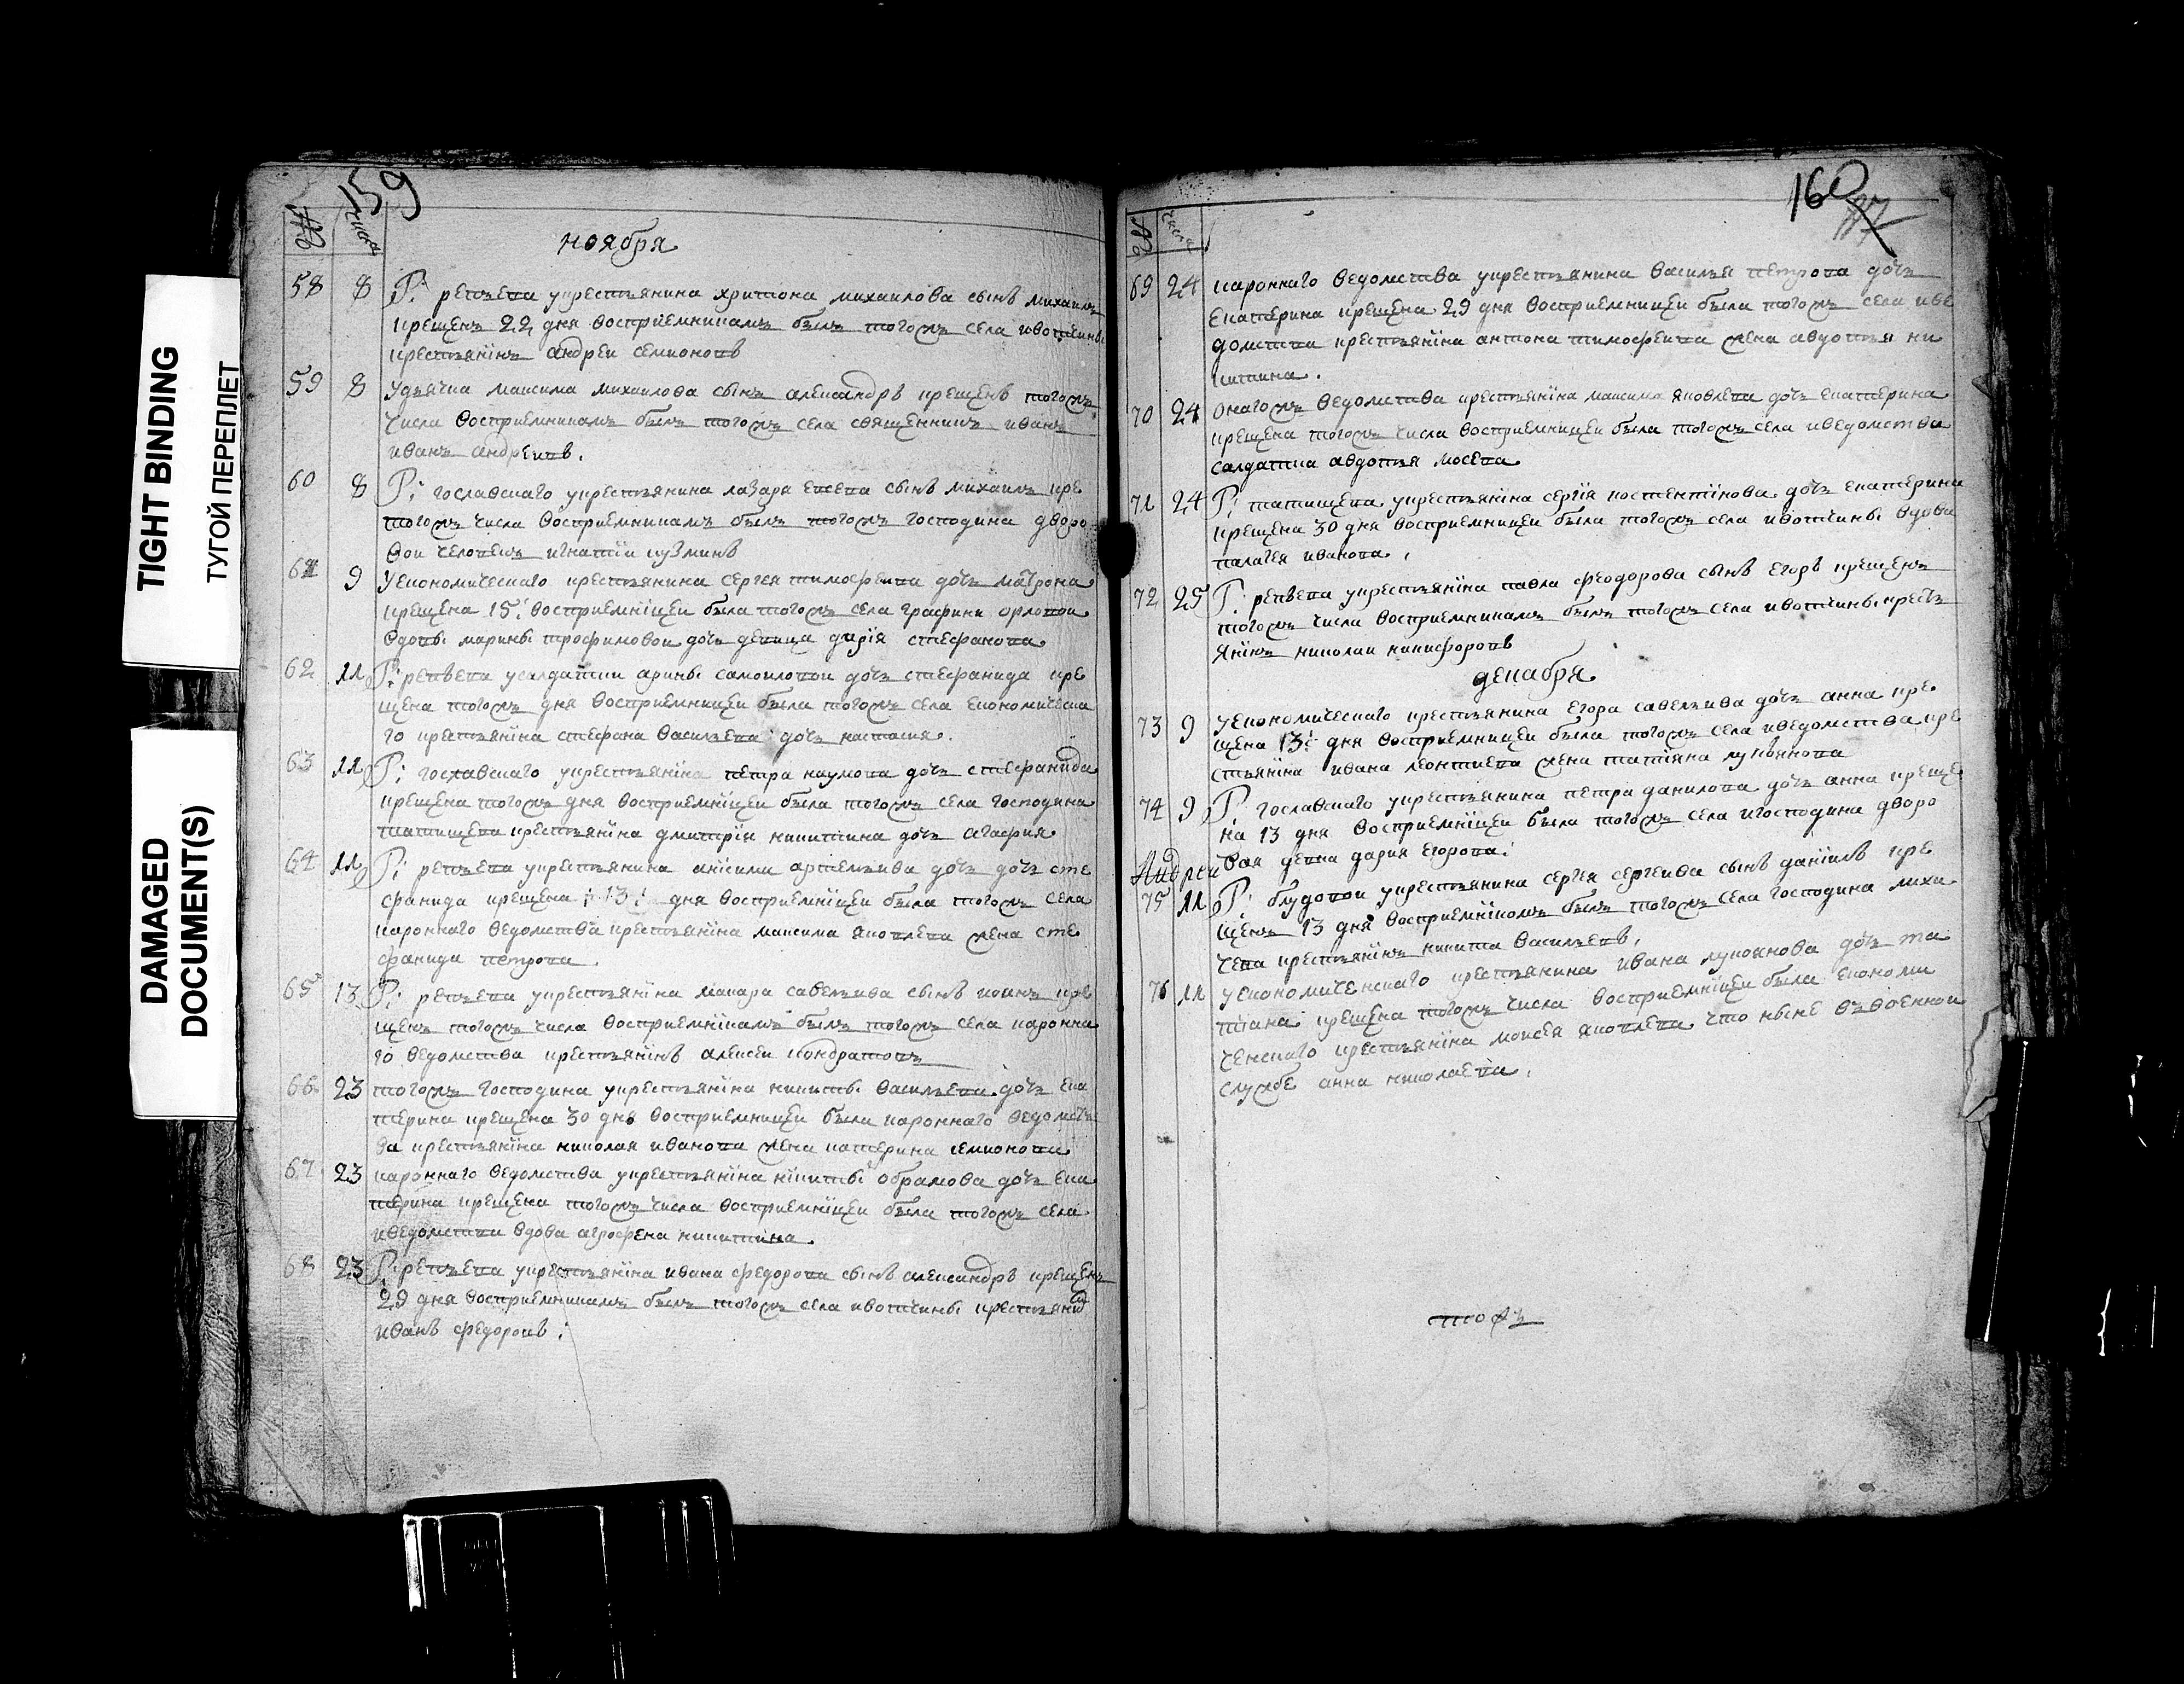 TIGHT BINDING
ТУГОЙ ПЕРЕПЛЕТ
DAMAGED
DOCUMENT(S)
159
№
числа
ноября
58 8 Г: ретвева укрестьянина харитона михаилова сынъ михаилъ
крещенъ 22 дня восприемникамъ былъ тогожъ села ивотчины
крестьянинъ андреи семионовъ
59 8 Удьячка максима михаилова сынъ александръ крещенъ тогожъ
числа восприемникамъ былъ тогожъ села священникъ иванъ
иванъ андреивъ.
60 8 Г: гославскаго укрестьянина лазаря евсева сынъ михаилъ кре
тогожъ числа восприемникамъ былъ тогожъ господина дворо
вои человекъ игнатии кузминъ
61 9 Уекономическаго крестьянина сергея тимофеива дочь матрона
крещена 15: восприемницеи была тогожъ села графини орловои
вдовы марины трофимовои дочь девица дария стефанова
62 11 Г: ретвева усалдатки арины самоиловои дочь стефанида кре
щена тогожъ дня восприемницеи была тогожъ села економическа
го крестьянина стефана васильева дочь настасия.
63 11 Г: гославскаго укрестьянина петра наумова дочь стефанида
крещена тогожъ дня восприемницеи была тогожъ села господина
татищева крестьянина дмитрия никитина дочь агафия
64 11 Г: ретвева укрестьянина анисима артемьива дочь дочь сте
фанида крещена 13: дня восприемницеи была тогожъ села
кароннаго ведомства крестьянина максима яковлева жена сте
фанида петрова.
65 13 Г: ретвева укрестьянина макара савельива сынъ иоинъ кре
щенъ тогожъ числа восприемникамъ былъ тогожъ села каронна
го ведомства крестьянинъ алексеи кондратовъ
66 23 тогожъ господина укрестьянина никиты васильева дочь ека
терина крещена 30 дня восприемницеи была кароннаго ведомст
ва крестьянина николая иванова жена катерина семионова
67 23 кароннаго ведомства укрестьянина никиты обрамова дочь ека
терина крещена тогожъ числа восприемницеи была тогожъ села
иведомства вдова агрофена никитина.
68 23 Г: ретвева укрестьянина ивана федорова сынъ александръ крещенъ
29 дня восприемникамъ былъ тогожъ села ивотчины крестьянинъ
иванъ федоровъ:
160
№
числа
69 24 кароннаго ведомства укрестьянина василья петрова дочь
екатерина крещена 29 дня восприемницеи была тогожъ села иве
домства крестьянина антона тимофеива жена авдотья ни
китина.
70 24 онагожъ ведомства крестьянина максима яковлева дочь екатерина
крещена тогожъ числа восприемницеи была тогожъ села иведомства
салдатка авдотья мосева
71 24 Г: татищева укрестьянина сергия костентинова дочь екатерина
крещена 30 дня восприемницеи была тогожъ села ивотчины вдова
палагея иванова.
72 25 Г: ретвева укрестьянина павла феодорова сынъ егоръ крещенъ
тогожъ числа восприемникамъ былъ тогожъ села ивотчины кресть
янинъ николаи никифоровъ
декабря
73 9 уекономическаго крестьянина егора савельива дочь анна кре
щена 13: дня восприемницеи была тогожъ села иведомства кре
стьянина ивана леонтиева жена татияна лукьянова
74 9 Г: гославскаго укрестьянина петра данилова дочь анна креще
на 13 дня восприемницеи была тогожъ села игосподина дворо
вая девка дария егорова:
Андреи
75 11 Г: блудовои укрестьянина сергея сергеива сынъ даниилъ кре
щенъ 13 дня восприемникомъ былъ тогожъ села господина лиха
чева крестьянинъ никита васильевъ.
76 11 уекономиченскаго крестьянина ивана лукоянова дочь та
тиана крещена тогожъ числа восприемницеи была економи
ченскаго крестьянина моисея яковлева что ныне въвоеннои
службе анна николаева.